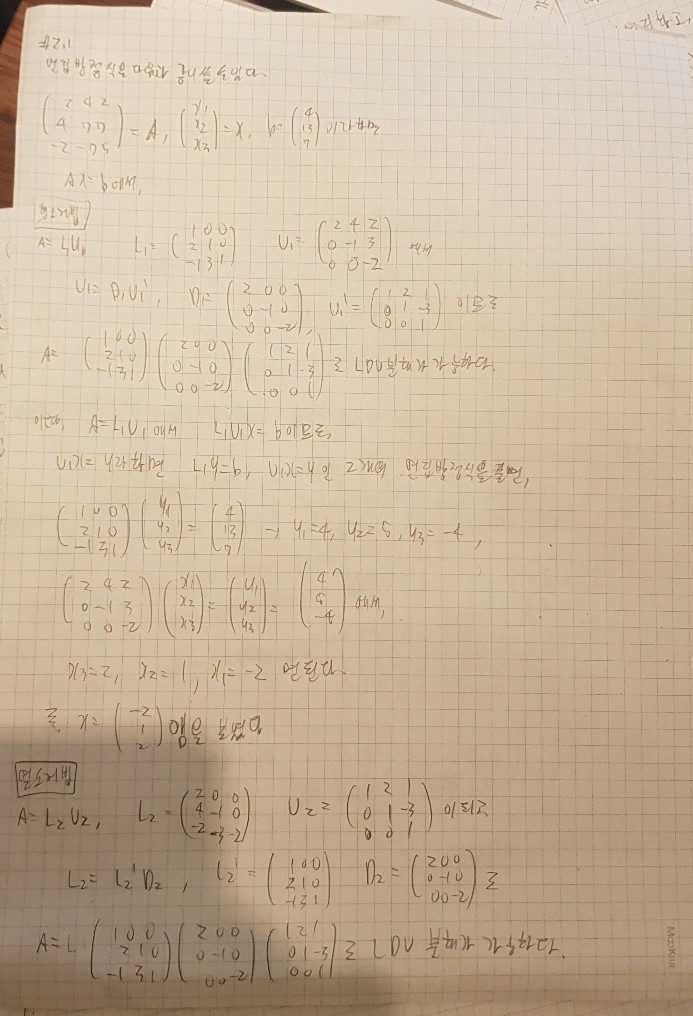 #2.1
연립방정식을 다음과 같이 쓸 수 있다.
( 2 4 2 / 4 7 7 / -2 -7 5 ) = A, ( x1 / x2 / x3 ) = x, b= ( 4 / 13 / 7 ) 이라 하면
Ax=b 에서,
A= L1U1 L1= ( 1 0 0 / 2 1 0 / -1 3 1 ) U1= ( 2 4 2 / 0 -1 3 / 0 0 -2 ) 에서
U1= D1U1', D1= ( 2 0 0 / 0 -1 0 / 0 0 -2 ), U1'= ( 1 2 1 / 0 1 -3 / 0 0 1 ) 이므로
A= ( 1 0 0 / 2 1 0 / -1 3 1 ) ( 2 0 0 / 0 -1 0 / 0 0 -2 ) ( 1 2 1 / 0 1 -3 / 0 0 1 ) 로 LDU
이때, A=L1U1 에서 L1U1x = b 이므로,
U1x= y라 하면 L1y=b, U1x=y 인 2개의 연립방정식을 풀면,
( 1 0 0 / 2 1 0 / -1 3 1 ) ( y1 / y2 / y3 ) = ( 4 / 13 / 7 ) → y1=4, y2=5, y3=-4,
( 2 4 2 / 0 -1 3 / 0 0 -2 ) ( x1 / x2 / x3 ) = ( y1 / y2 / y3 ) = ( 4 / 5 / -4 ) 에서,
x3=2, x2=1, x1=-2
x= ( -2 / 1 / 2 ) 임을
A= L2U2, L2= ( 2 0 0 / 4 -1 0 / -2 -3 -2 ) U2= ( 1 2 1 / 0 1 -3 / 0 0 1 ) 이므로
L2= L2'D2, L2'= ( 1 0 0 / 2 1 0 / -1 3 1 ) D2= ( 2 0 0 / 0 -1 0 / 0 0 -2 ) 로
A= ( 1 0 0 / 2 1 0 / -1 3 1 ) ( 2 0 0 / 0 -1 0 / 0 0 -2 ) ( 1 2 1 / 0 1 -3 / 0 0 1 ) 로 LDU